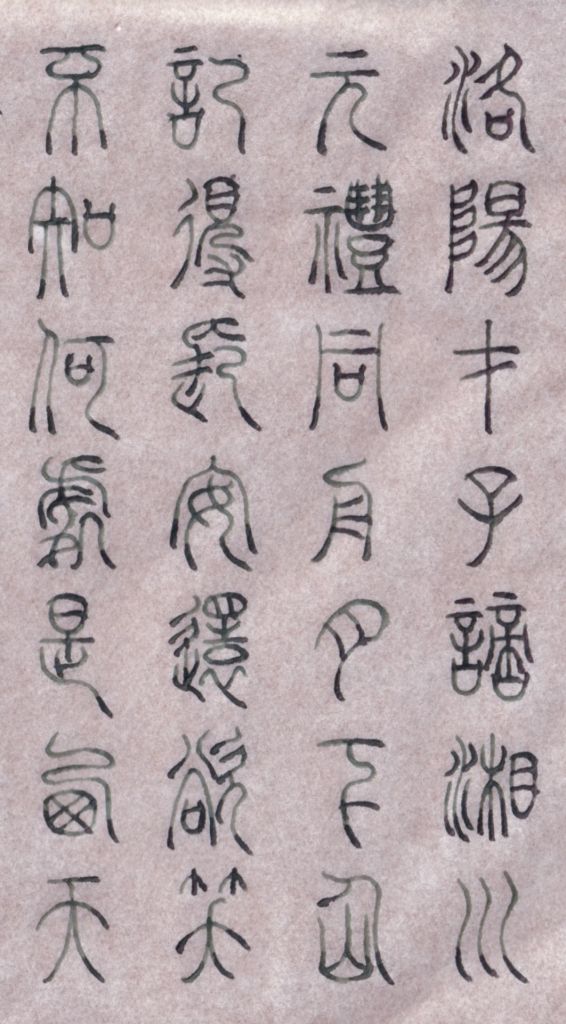 洛陽才子謫湘川
元禮同舟月下仙
記得長安還欲笑
不知何處是西天